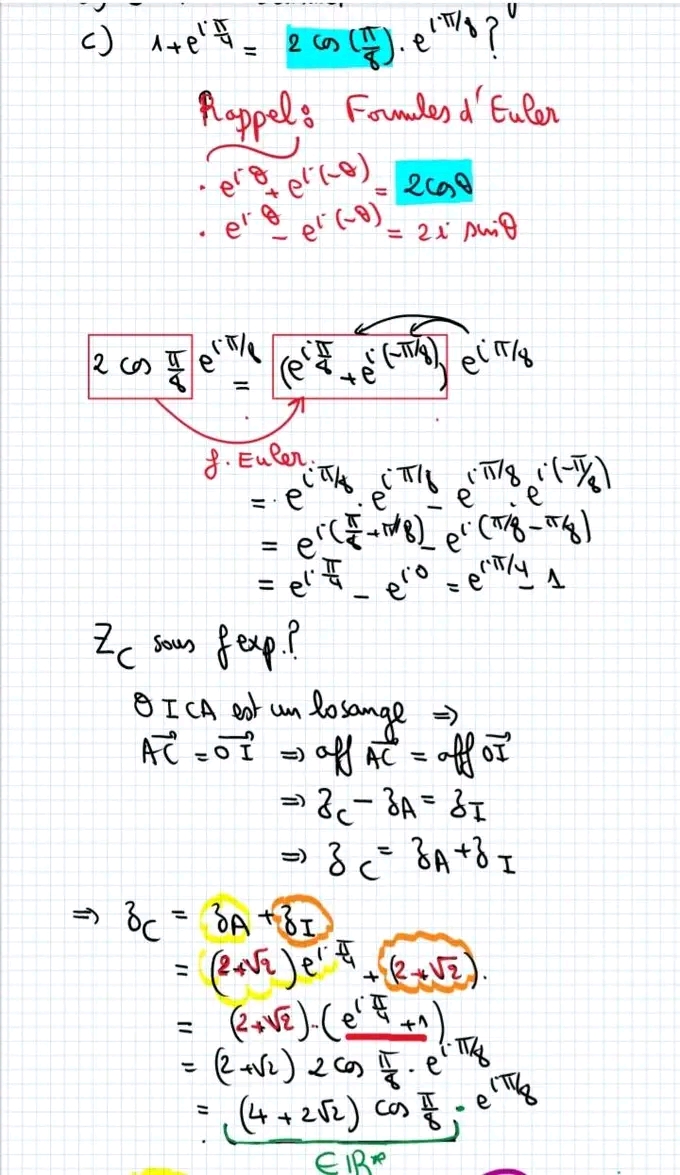 c) 1+e^{iπ/4} = 2 cos(π/8). e^{iπ/8} ?
Rappel: Formules d'Euler
. e^{iθ} + e^{i(-θ)} = 2cosθ
. e^{iθ} - e^{i(-θ)} = 2i sinθ
2 cos π/8 e^{iπ/8} = (e^{iπ/8} + e^{i(-π/8)}) e^{iπ/8}
f. Euler.
= e^{iπ/8} . e^{iπ/8} - e^{iπ/8} . e^{i(-π/8)}
= e^{i(π/8+π/8)} - e^{i(π/8-π/8)}
= e^{iπ/4} - e^{i0} = e^{iπ/4} - 1
Z_C sous f exp.?
OICA est un losange ⇒
AC⃗ = OI⃗ ⇒ aff AC⃗ = aff OI⃗
⇒ z_C - z_A = z_I
⇒ z_C = z_A + z_I
⇒ z_C = z_A + z_I
= (2+√2) e^{iπ/4} + (2+√2).
= (2+√2).(e^{iπ/4} + 1)
= (2+√2) 2 cos π/8 . e^{iπ/8}
= (4 + 2√2) cos π/8 . e^{iπ/8}
∈ IR*